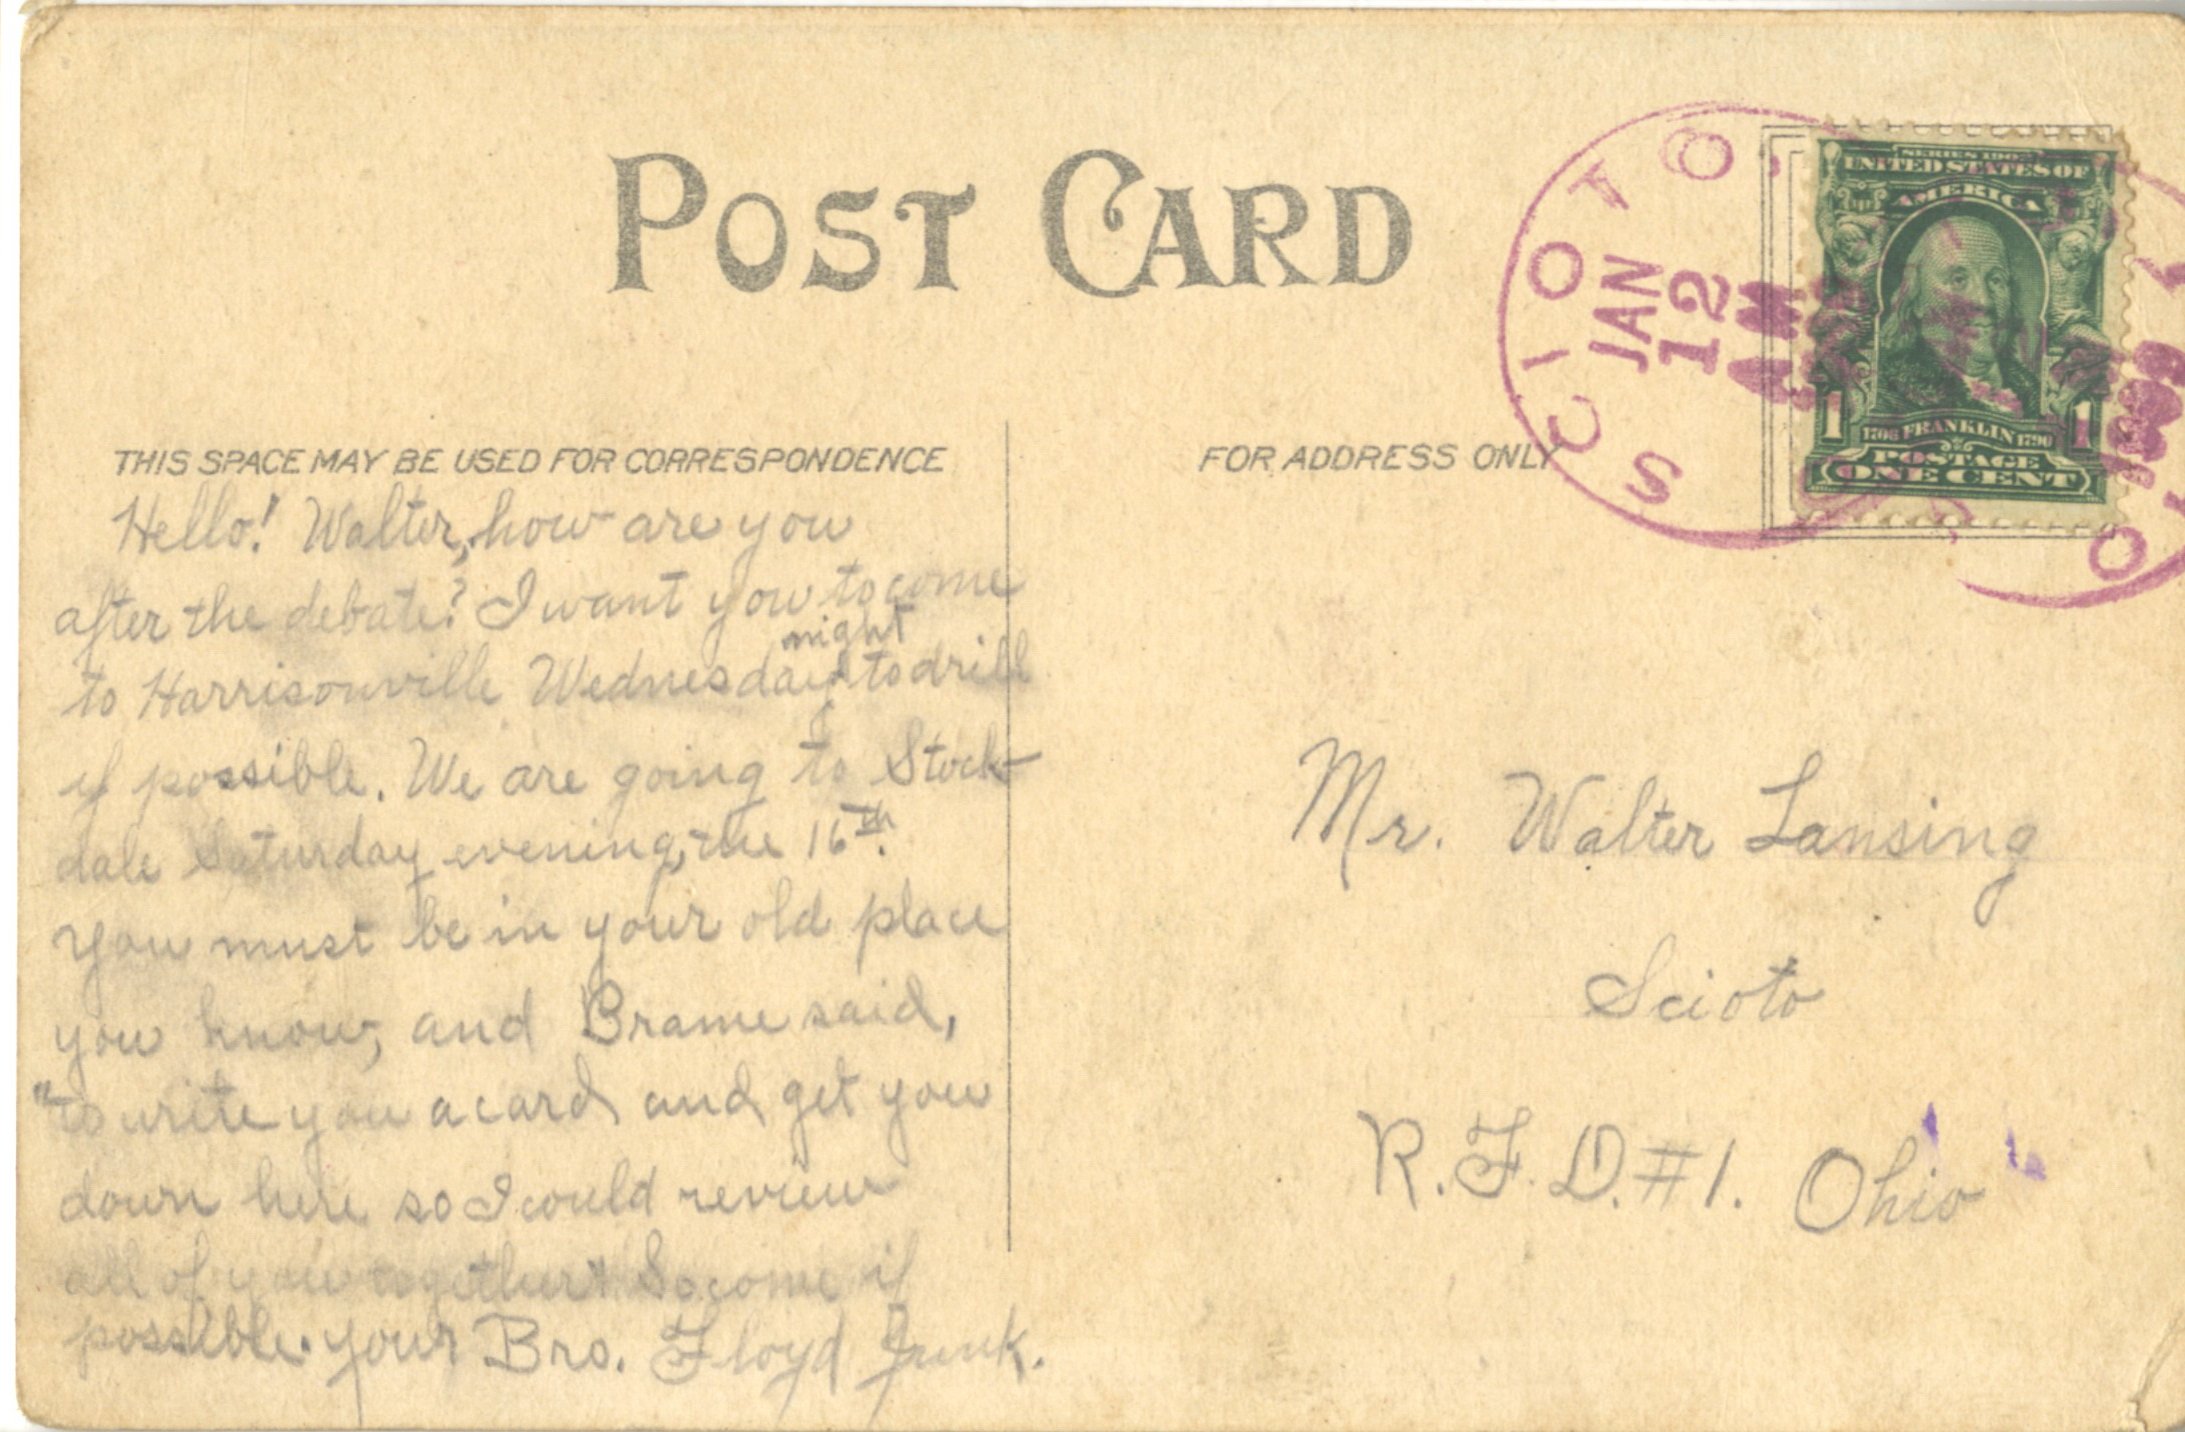 POST CARD
SCIOTO.
JAN
12
AM
SERIES 1902
UNITED STATES OF
AMERICA
1 1
1706 FRANKLIN 1790
POSTAGE
ONE CENT
THIS SPACE MAY BE USED FOR CORRESPONDENCE
Hello! Walter, how are you
after the debate? I want you to come
night
to Harrisonville Wednesday to drill
if possible. We are going to Stock-
dale Saturday evening, the 16th.
You must be in your old place
you know, and Brame said,
"to write you a card and get you
down here so I could review
all of you together" So come if
possible. Your Bro. Floyd Junk.
FOR ADDRESS ONLY
Mr. Walter Lansing
Scioto
R.F.D.#1. Ohio